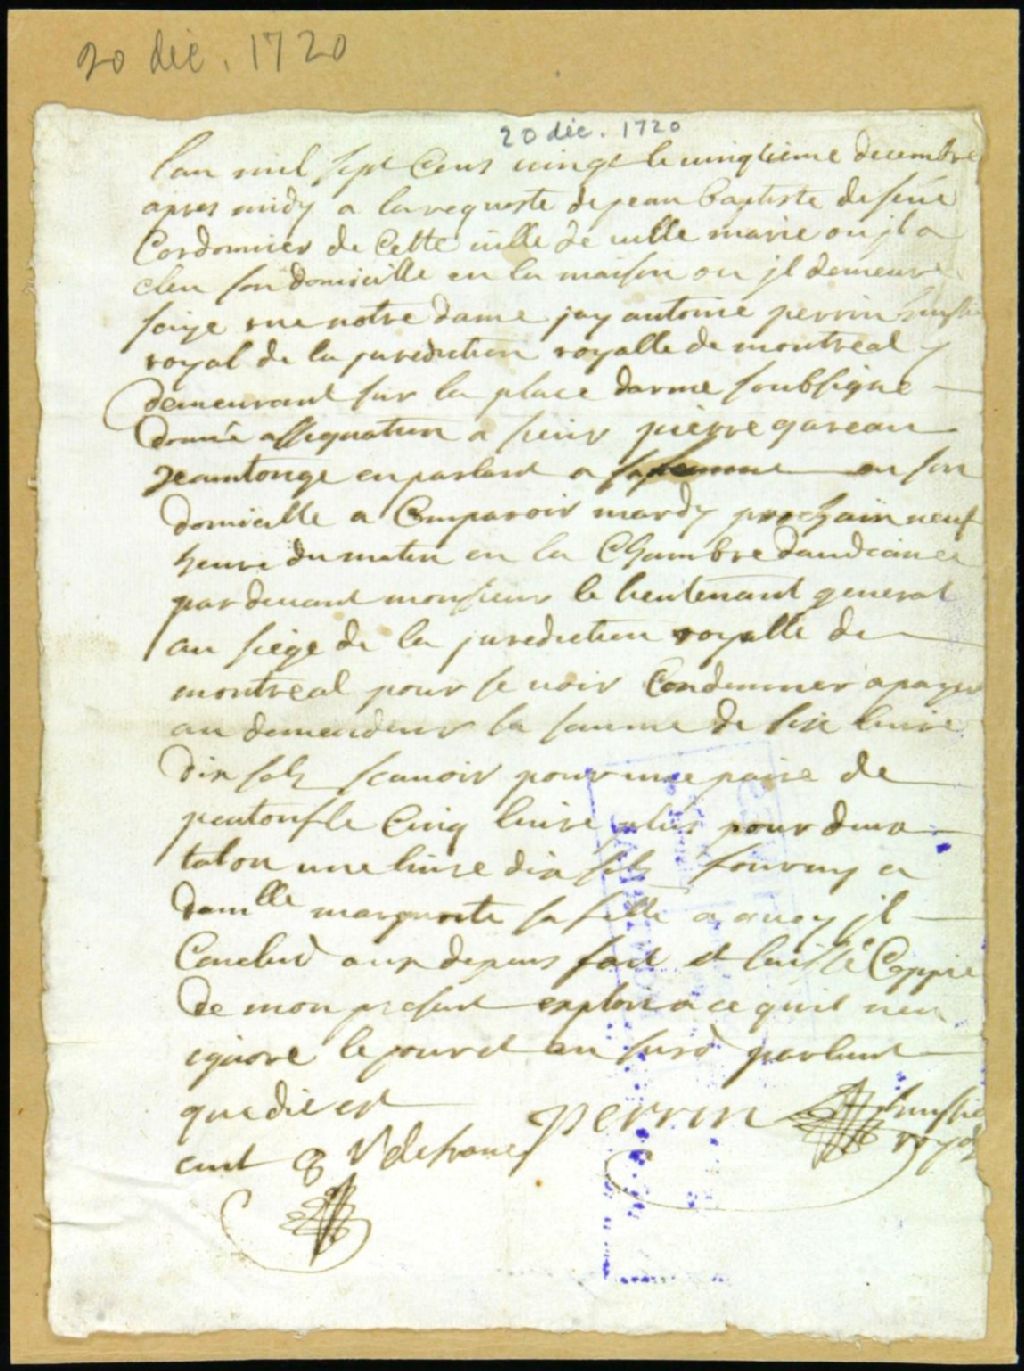 20 dec. 1720
20 dec. 1720
lan mil sept Cens vingt le vingtieme decembre
apres midy a la requeste de jean baptiste
Cordonnier de Cette ville de ville marie ou jl a
eleu son domicille en la maison ou jl demeure
size rue notre dame jay antoine perrin huissie
royal de la juridiction royalle de montreal
demeurant sur la place darme soubsigné
donné assignation a sieur pierre gareau
en parlant a en son
domicille a Comparoir mardy prochain neuf
heure du matin en la Chambre daudiance
par devant monsieur le lieutenant general
au siege de la juridiction royalle de
montreal pour se voir Condemner a payer
au demandeur la somme de six livre
dix solz scavoir pour une paire de
pentoufle Cinq livre plus pour deux
talon une livre dix solz fourny a
damlle margueritte sa fille a quoy jl
Conclud aux depans fait et laissé Coppie
de mon present exploit a ce quil nen
ignore le jour et an susd parlant
que dit est
perrin huissie
royal